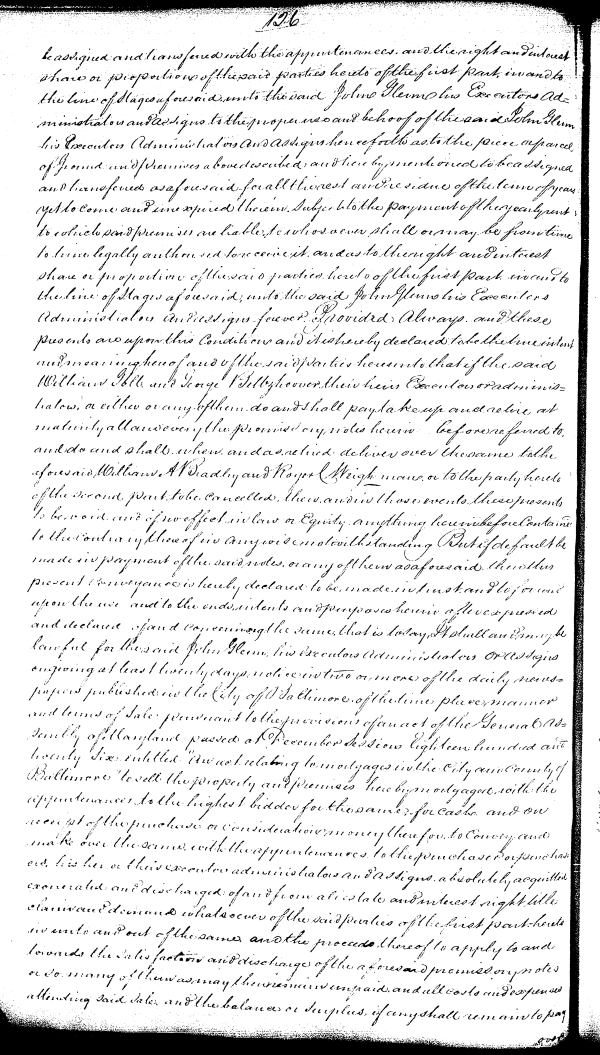 126
be assigned and transfered with the appurtenances. and the right and interest
share or proportion of the said parties hereto of the first part, in and to
the line of Stages aforesaid, unto the said John Glenn his Executors Ad=
ministrators and Assigns, to the proper use and behoof of the said John Glenn
his Executors Administrators and Assigns henceforth as to the piece or parcel
of Ground and premises above described and hereby mentioned to be assigned
and transfered as aforesaid for all the rest and residue of the term of years
yet to come and unexpired therein, Subject to the payment of the yearly rent
to which said premises are liable, to whosoever shall or may be from time
to time legally authorised to receive it, and as to the right and interest
share or proportion of the said parties hereto of the first part in and to
the line of Stages aforesaid, unto the said John Glenn his Executors
Administrators and Assigns forever. Provided Always and these
presents are upon this Condition and it is hereby declared to be the true intent
and meaning hereof and of the said parties hereunto that if the said
William and George Beltzhoover their heirs Executors or adminis=
trators, or either or any of them do and shall pay take up and retire at
maturity all and every the promissory notes herein before referred to,
and do and shall when and as retired deliver over the same to the
aforesaid William A Bradley and Roger C Weightman, or to the party hereto
of the second part, to be cancelled, then and in those events, these presents
to be void and of no effect in law or Equity, anything herein before contained
to the contrary thereof in anywise notwithstanding But if default be
made in payment of the said notes, or any of them as aforesaid then this
present Conveyance is hereby declared to be made in trust and to for and
upon the use and to the ends, intents and purposes herein after expressed
and declared of and concerning the same, that is to say, It shall and may be
lawful for the said John Glenn, his Executors Administrators or Assigns
on giving at least twenty days notice in two or more of the daily news=
papers published in the City of Baltimore, of the time place, manner
and terms of Sale pursuant to the provisions of an act of the General As=
sembly of Maryland passed at December Session Eighteen hundred and
twenty Six entitled "An act relating to mortgages in the City and County of
Baltimore" to sell the property and premises hereby mortgaged with the
appurtenances, to the highest bidder for the same, for Cash, and on
receipt of the purchase or consideration money therefor, to Convey and
make over the same, with the appurtenances, to the purchaser or purchas=
ers, his her or their executors administrators and Assigns, absolutely acquitted
exonerated and discharged of and from all estate and interest right title
claim and demand whatsoever of the said parties of the first part hereto
in unto and out of the same and the proceeds thereof to apply to and
towards the satisfaction and discharge of the aforesaid promissory notes
or so many of them as may then remain unpaid, and all costs and expenses
attending said Sale, and the balance or Surplus, if any shall remain to pay
over